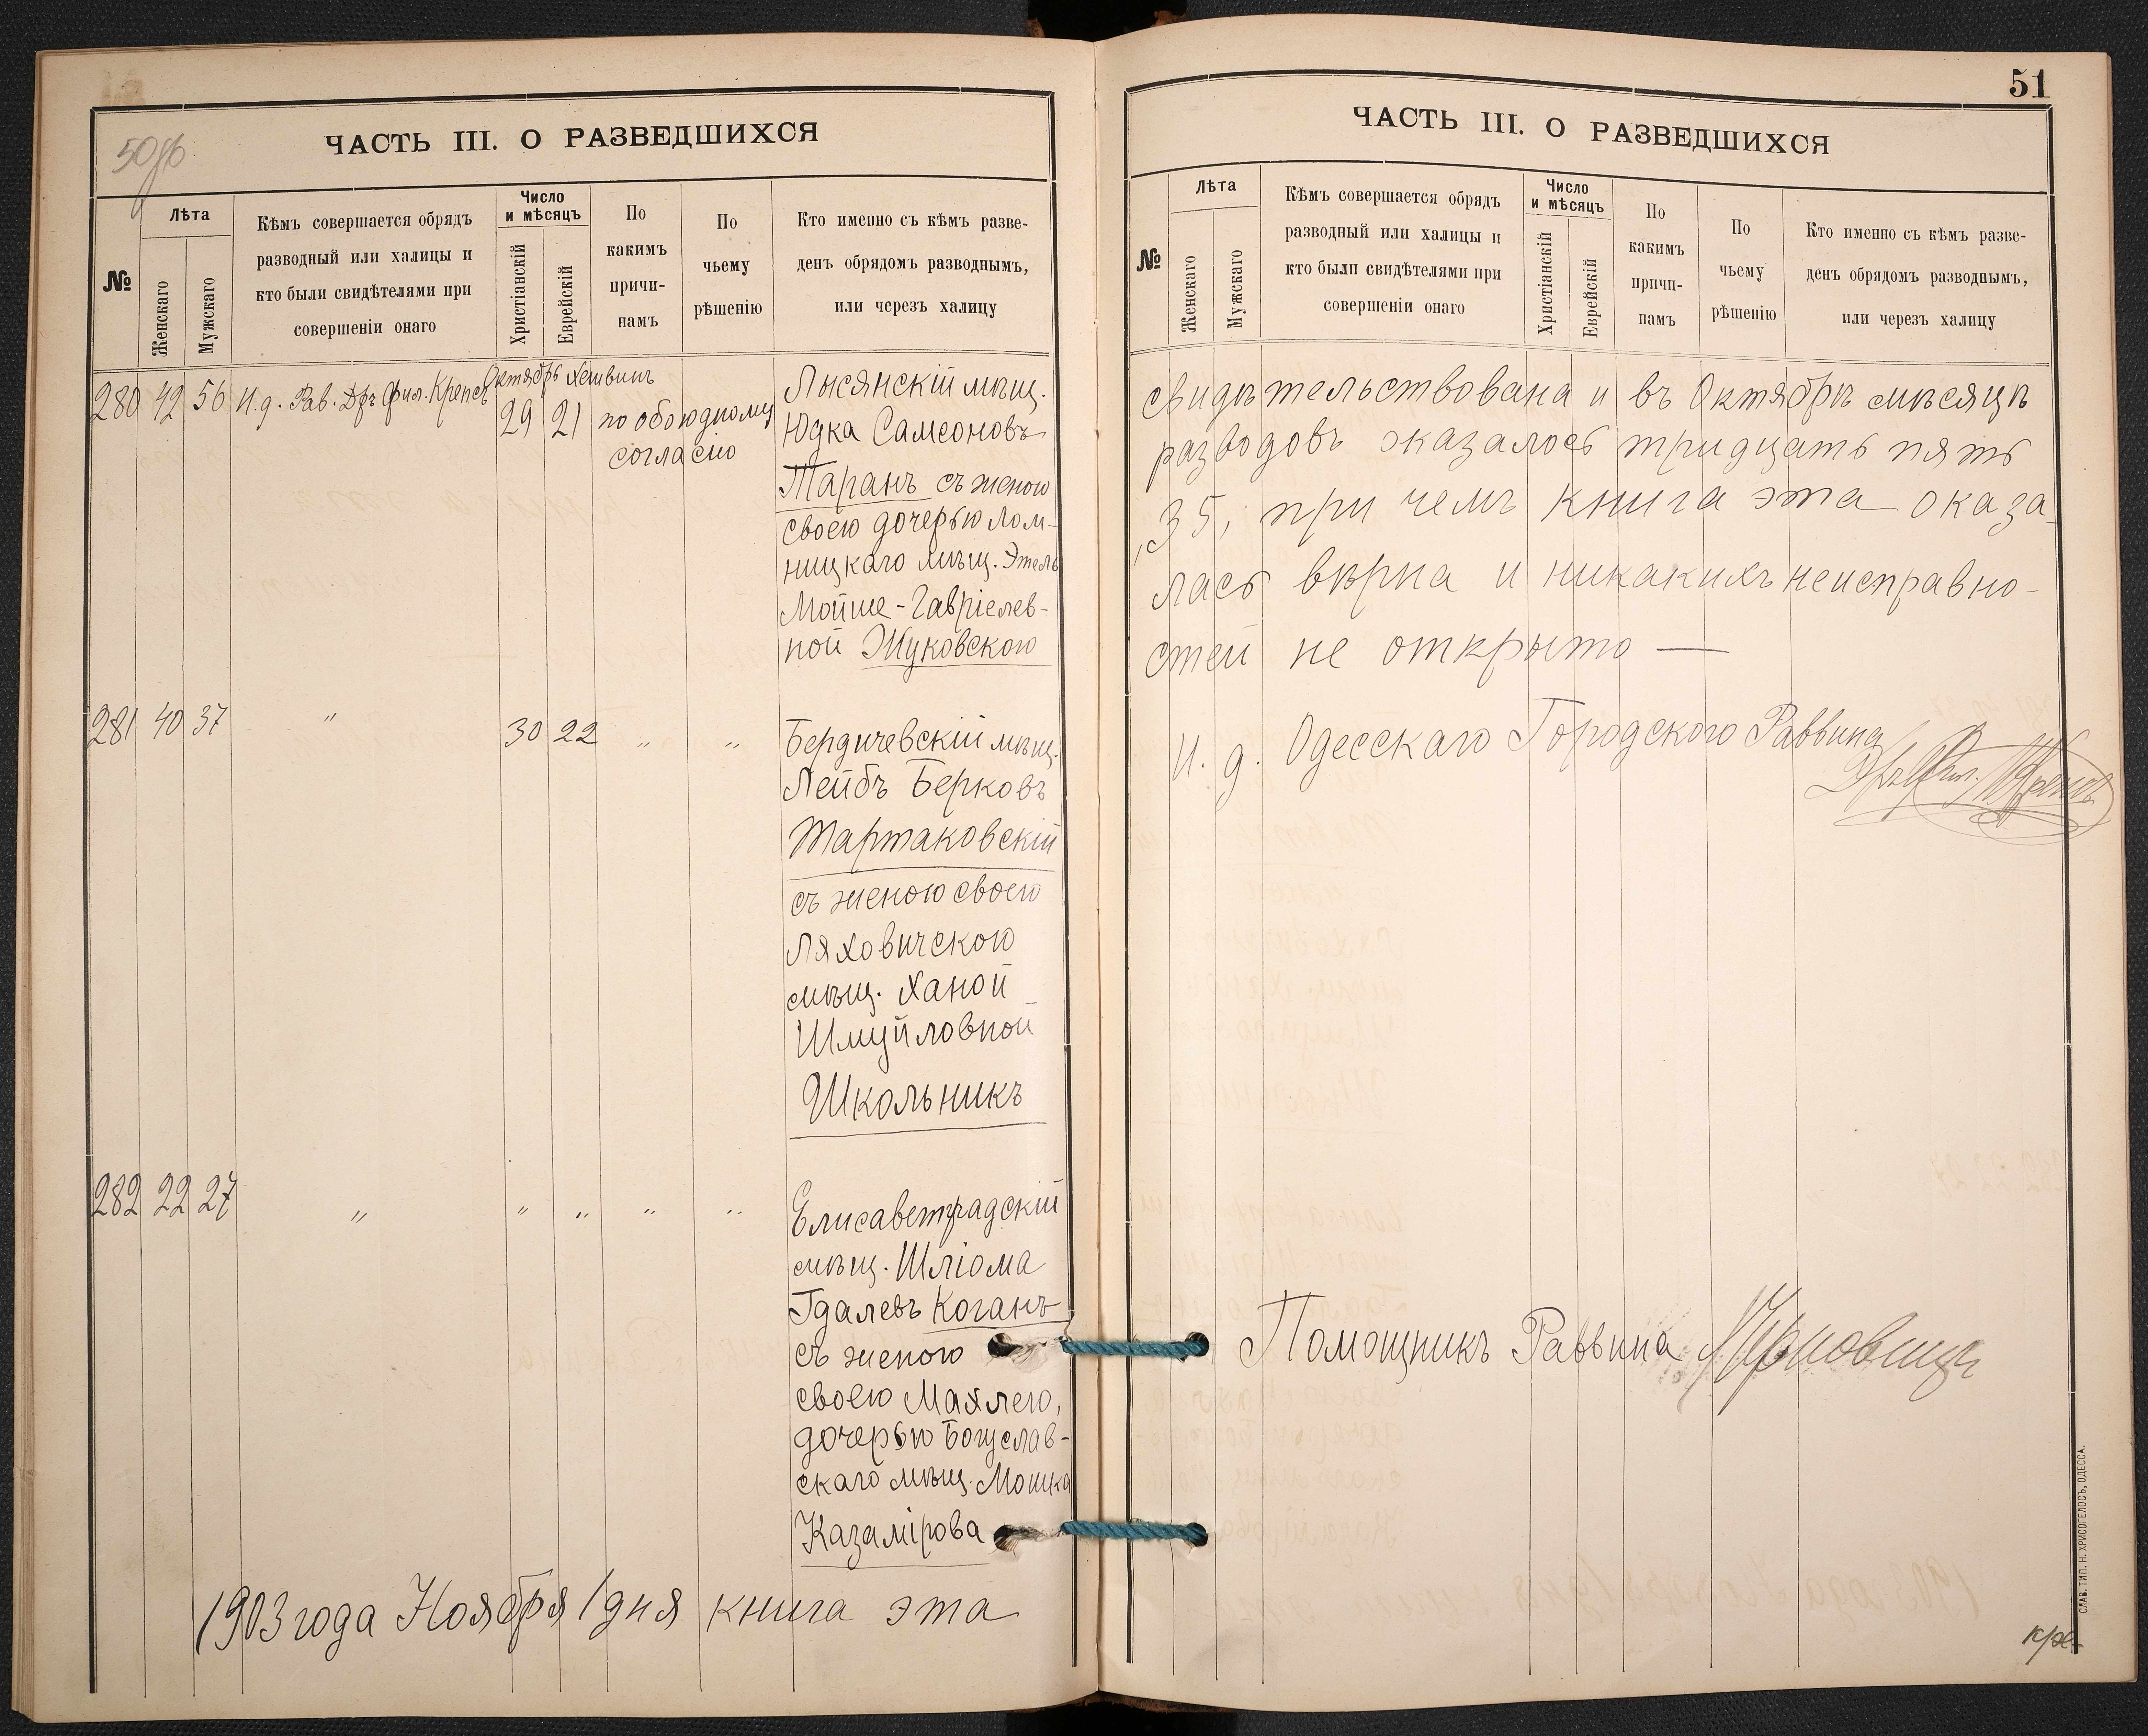 50об
ЧАСТЬ III. О РАЗВЕДШИХСЯ
№
Лѣта
Женскаго
Мужскаго
Кѣмъ совершается обрядъ
разводный или халицы и
кто были свидѣтелями при
совершеніи онаго
Число
и мѣсяцъ
Христіанскій
Еврейскій
По
какимъ
причи-
намъ
По
чьему
рѣшенію
Кто именно съ кѣмъ разве-
денъ обрядомъ разводнымъ,
или черезъ халицу
280 42 56 И.д. Рав. Дръ Фил. Крепсъ
Октябрь Хешвинъ
29 21
по обоюдному
согласію
Лысянскій мѣщ.
Юдка Самсоновъ
Таранъ съ женою
своею дочерью Лом-
ницкаго мѣщ. Этель
Мойше-Гавріелев-
ной Жуковскою
281 40 37 " 30 22 " "
Бердичевскій мѣщ.
Лейбъ Берковъ
Тартаковскій
съ женою своею
Ляховичскою
мѣщ. Ханой
Шмуйловной
Школьникъ
282 22 27 " " " " "
Елисаветградскій
мѣщ. Шліома
Гдалевъ Коганъ
съ женою
своею Махлею,
дочерью Богуслав-
скаго мѣщ. Мошка
Казамірова
1903 года Ноября 1 дня книга эта
51
ЧАСТЬ III. О РАЗВЕДШИХСЯ
№
Лѣта
Женскаго
Мужскаго
Кѣмъ совершается обрядъ
разводный или халицы и
кто были свидѣтелями при
совершеніи онаго
Число
и мѣсяцъ
Христіанскій
Еврейскій
По
какимъ
причи-
намъ
По
чьему
рѣшенію
Кто именно съ кѣмъ разве-
денъ обрядомъ разводнымъ,
или черезъ халицу
свидѣтельствована и въ Октябрѣ мѣсяцѣ
разводовъ оказалось тридцать пять
35, при чемъ книга эта оказа-
лась вѣрна и никакихъ неисправно-
стей не открыто —
И. д. Одесскаго Городского Раввина
Дръ Фил. Крепсъ
Помощникъ Раввина
СЛАВ. ТИП. Н. ХРИСОГЕЛОСЪ, ОДЕССА.